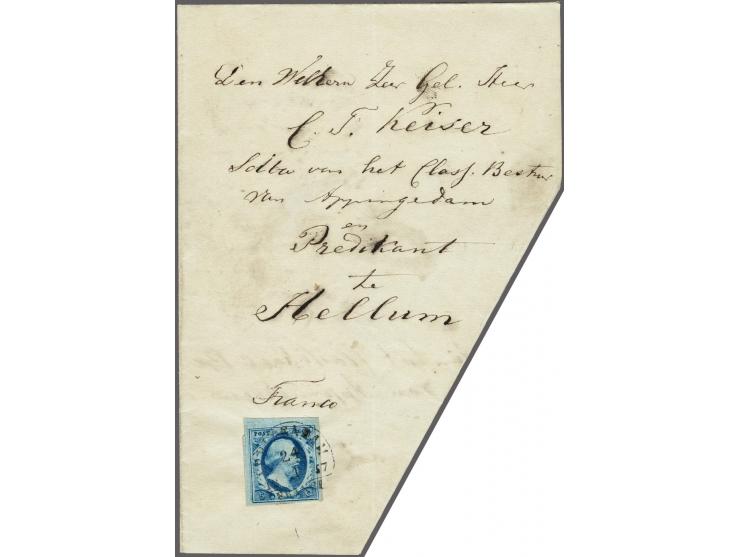 Den Weleerw Zeer Gel. Heer
C. T. Keiser
van het Class. Bestuur
van Appingedam
en
Predikant
te
Hellum
Franco
POST
24